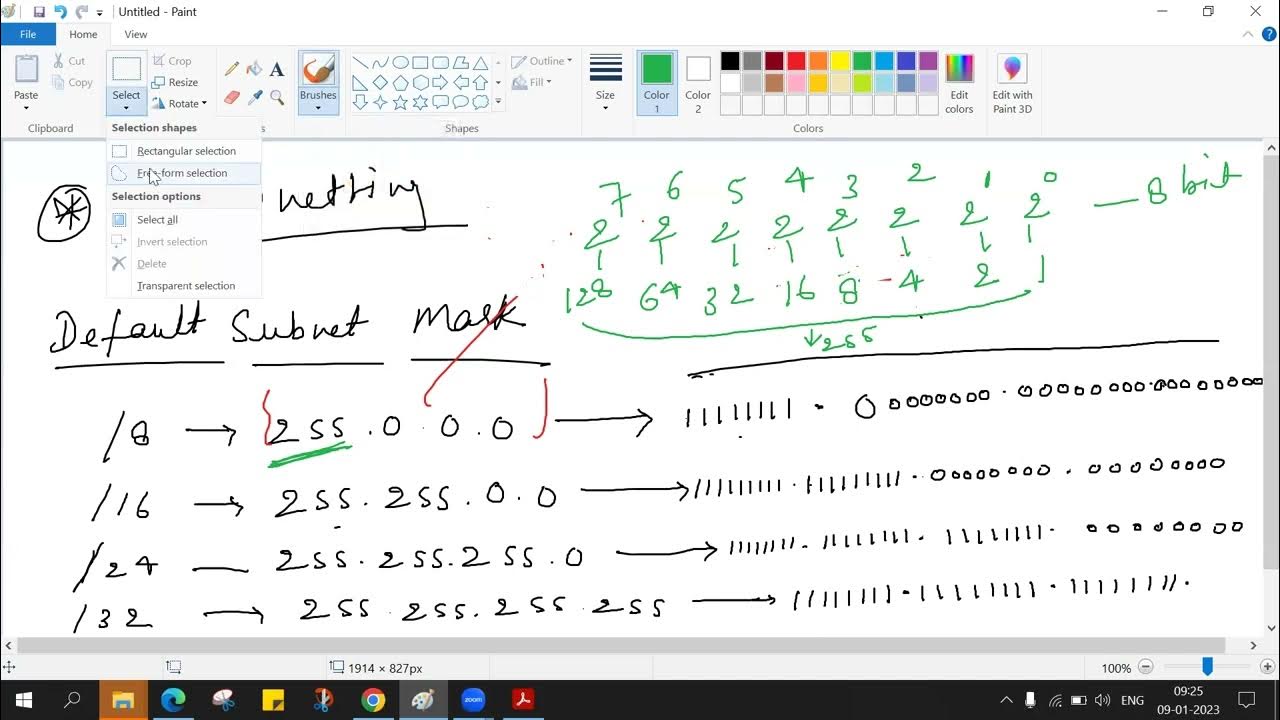 Untitled - Paint
File Home View
Paste Cut Copy Select Crop Resize Rotate Brushes Outline Fill Size Color 1 Color 2 Edit colors Edit with Paint 3D
Clipboard Shapes Colors
Selection shapes
Rectangular selection
Free-form selection
Selection options
Select all
Invert selection
Delete
Transparent selection
netting
7 6 5 4 3 2 1 0
2 2 2 2 2 2 2 2 — 8 bit
128 64 32 16 8 4 2 1
↓ 255
Default Subnet Mask
/8 → 255.0.0.0 → 11111111 .
/16 → 255.255.0.0 →
/24 — 255.255.255.0 →
/32 → 255.255.255.255 →
1914 × 827px 100%
zoom ENG 09:25
09-01-2023